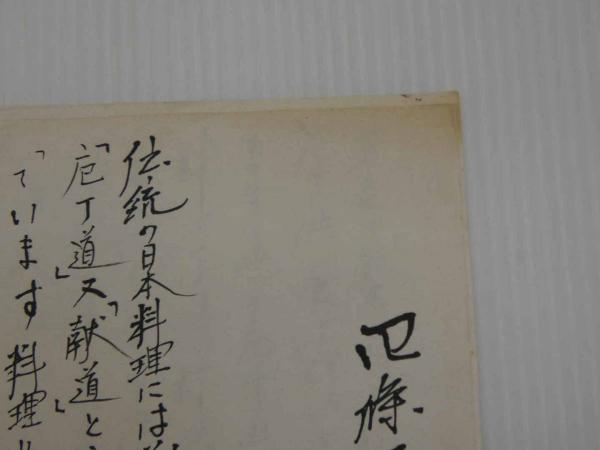 四條
伝統の日本料理には
「庖丁道」又「献道」と
ています料理